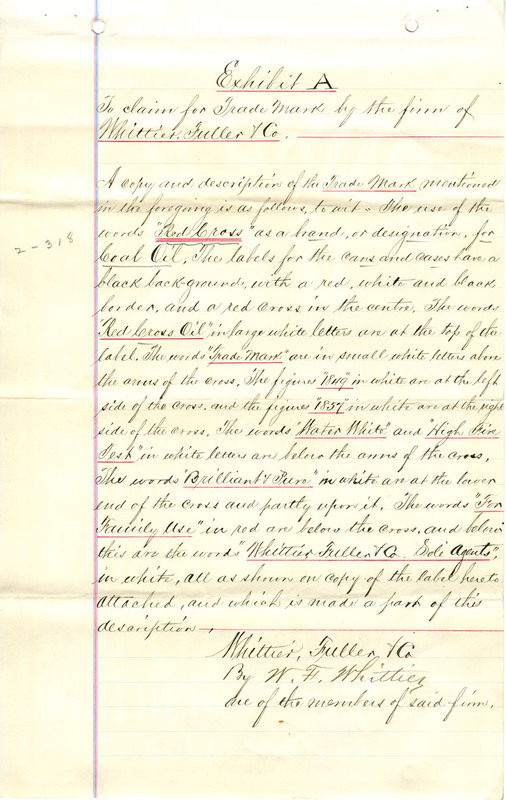 Exhibit A
To claim for Trade Mark by the firm of
Whittier, Fuller & Co.
A copy and description of the Trade Mark mentioned
in the foregoing is as follows, to wit. The use of the
words "Red Cross" as a brand, or designation, for
Coal Oil. The labels for the cans and cases have a
black back-ground, with a red, white and black
border, and a red cross in the centre. The words
"Red Cross Oil" in large white letters are at the top of the
label. The words "Trade Mark" are in small white letters above
the arms of the cross. The figures in white are at the left
side of the cross, and the figures "1857" in white are at the right
side of the cross. The words "Water White" and "High Fire
Test" in white letters are below the arms of the cross.
The words "Brilliant & Pure" in white are at the lower
end of the cross and partly upon it. The words "For
Family Use" in red are below the cross, and below
this are the words "Whittier Fuller & Co Sole Agents",
in white, all as shown on copy of the label hereto
attached, and which is made a part of this
description.
Whittier, Fuller, & Co
By W. F. Whittier
one of the members of said firm.
2-318